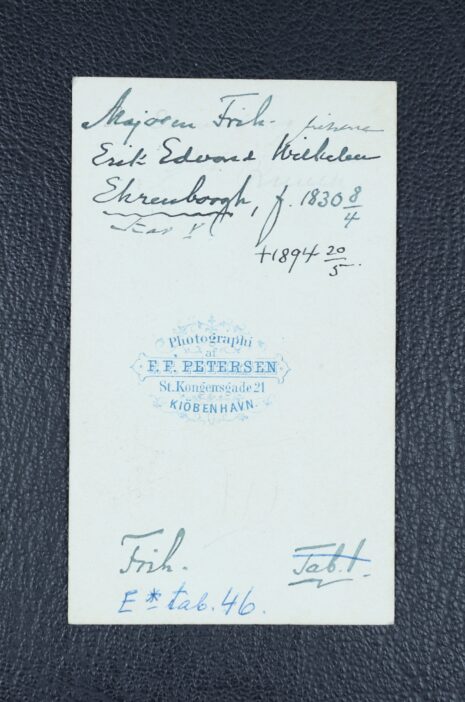 Majoren Frih.
Erik Edvard Wilhelm
Ehrenborgh, f. 1830 8/4
+1894 20/5.
Photographi
af
F. F. PETERSEN
St. Kongensgade 21
KIÖBENHAVN.
Frih. Tab. 1.
E * tab. 46.